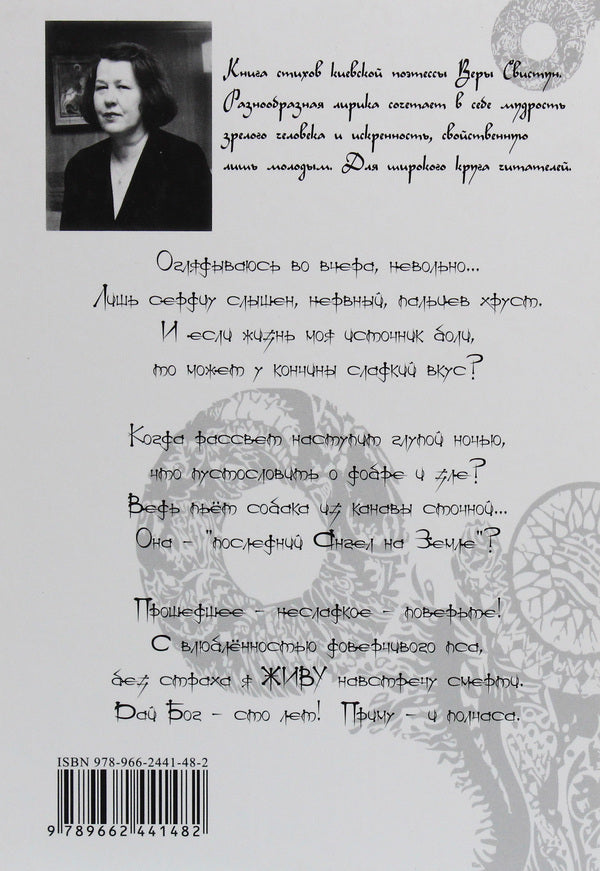 Книга стихов киевской поэтессы Веры Свистун.
Разнообразная лирика сочетает в себе мудрость
зрелого человека и искренность, свойственную
лишь молодым. Для широкого круга читателей.
Оглядываюсь во вчера, невольно...
Лишь сердцу слышен, нервный, пальцев хруст.
И если жизнь моя источник боли,
то может у кончины сладкий вкус?
Когда рассвет наступит глухой ночью,
что пустословить о добре и зле?
Ведь пьёт собака из канавы сточной...
Она - "последний Ангел на Земле"?
Прошедшее - несладкое - поверьте!
С влюблённостью доверчивого пса,
без страха я ЖИВУ навстречу смерти.
Дай Бог - сто лет! Приму - и полчаса.
ISBN 978-966-2441-48-2
9 789662 441482